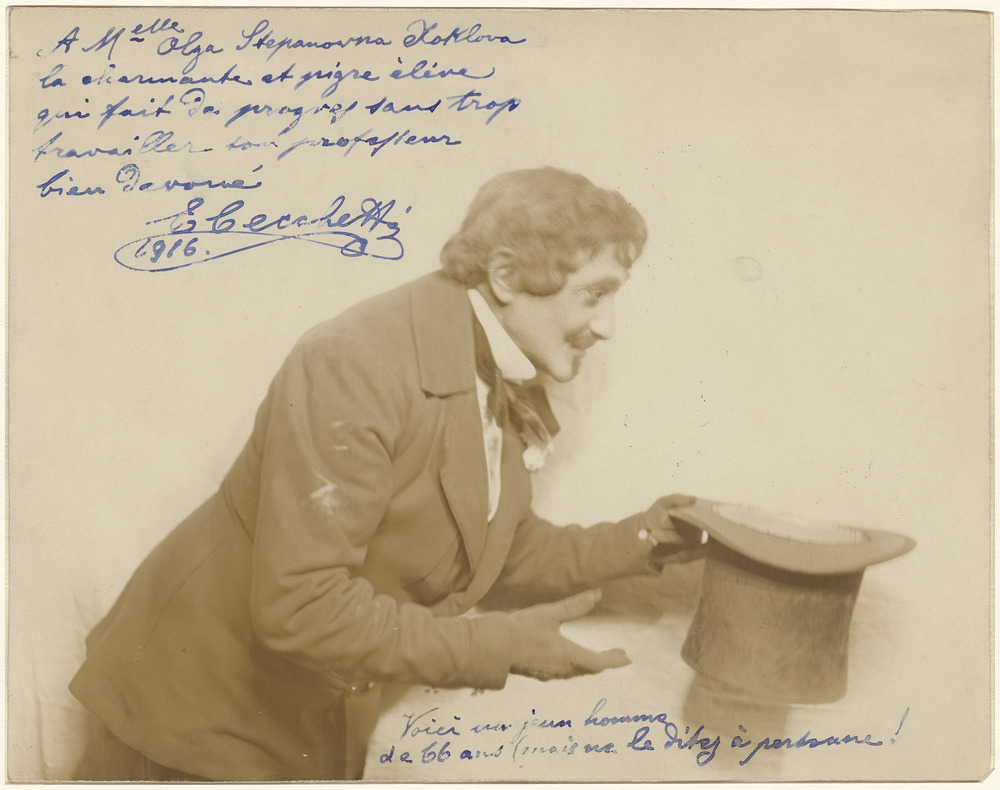 A Melle Olga Stepanowna Koklova
la charmante et pigre élève
qui fait de progres sans trop
travailler son professeur
bien devoué
E Cecchetti
1916.
Voici un jeun homme
de 66 ans (mais ne le ditez à personne!